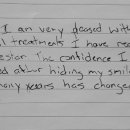 I am very pleased with
l treatments I have rec
estor. The confidence I
ed after hiding my smile
any years has changed